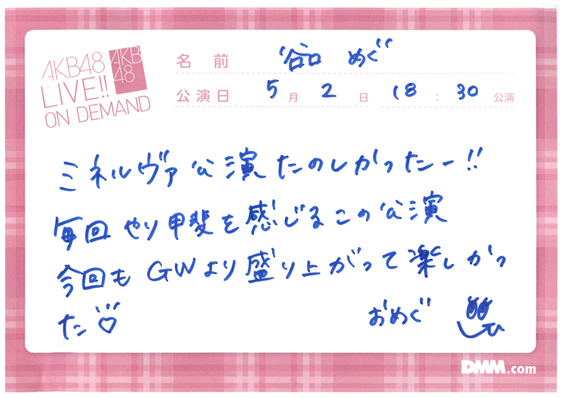 AKB48
LIVE!!
ON DEMAND
AKB
48
名前 谷口 めぐ
公演日 5月2日 18:30公演
ミネルヴァ公演たのしかったー!!
毎回やり甲斐を感じるこの公演
今回もGWより盛り上がって楽しかっ
た♡
おめぐ
DMM.com